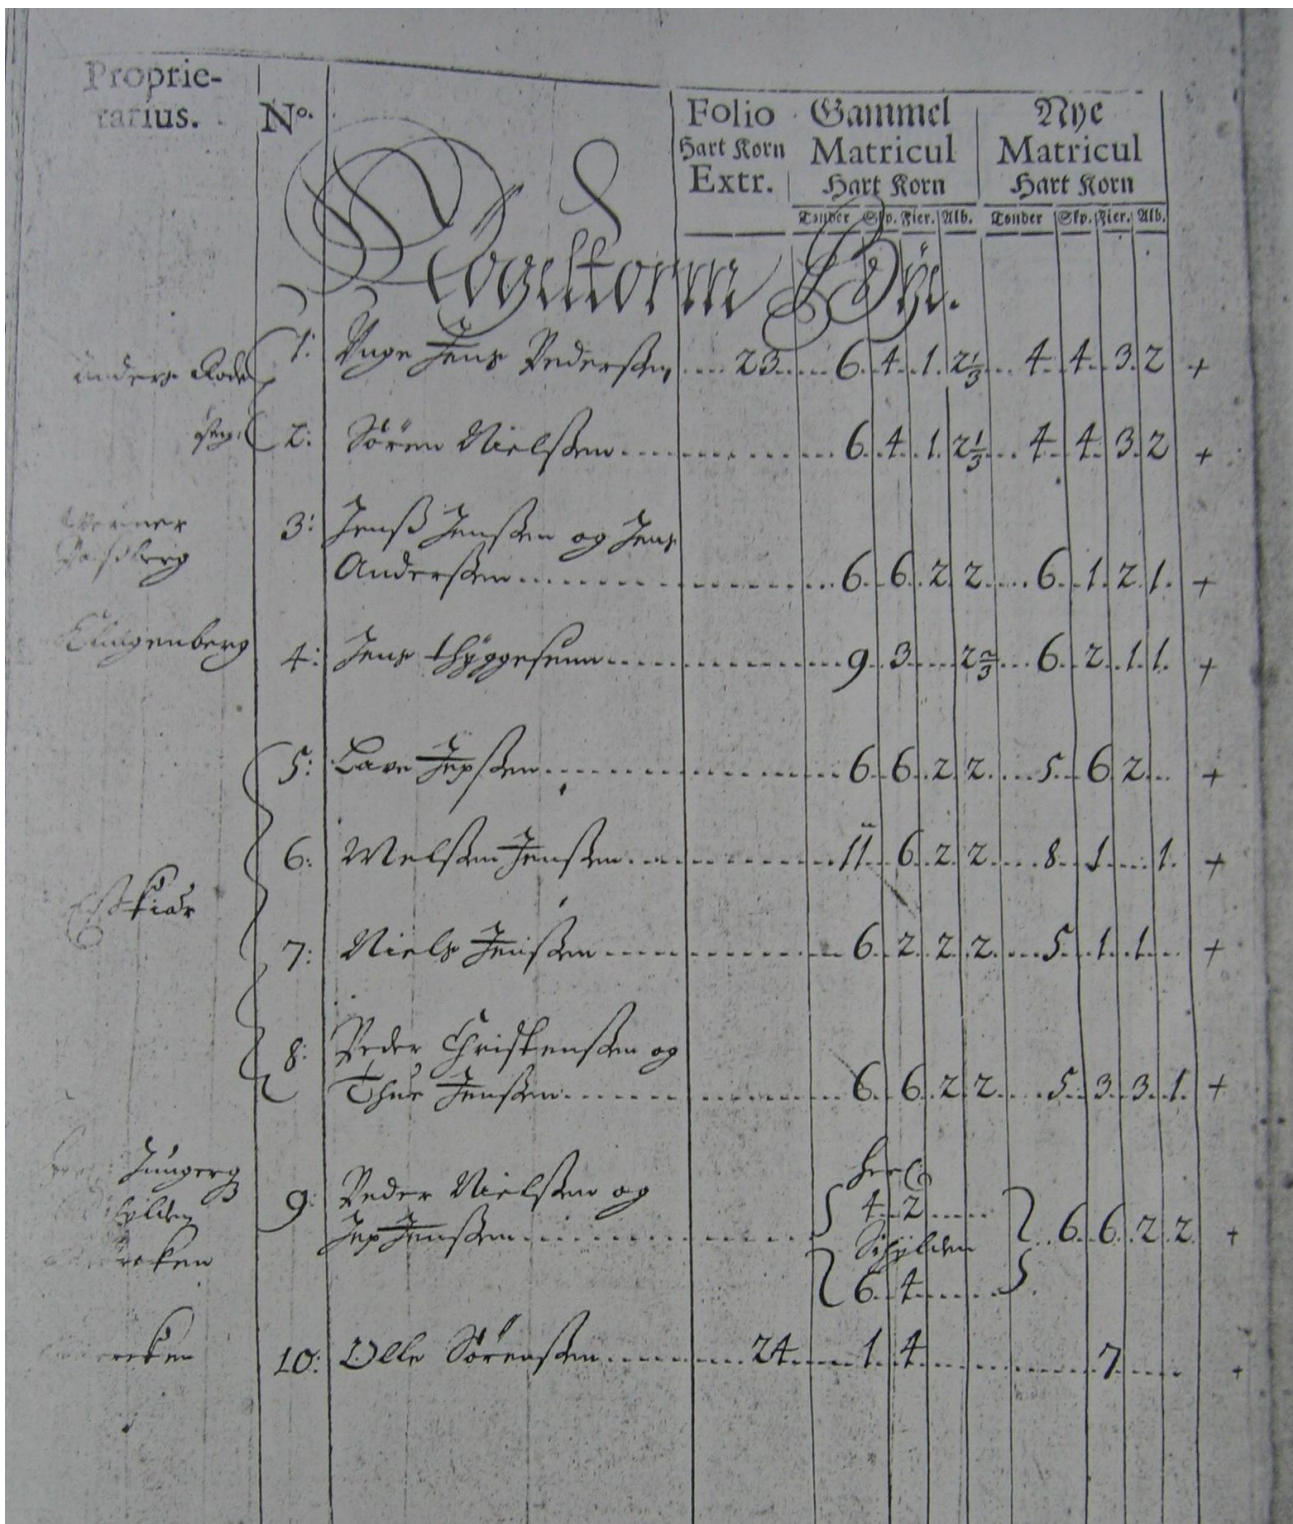 Proprie-
tarius.
No.
Folio
Hart Korn
Extr.
Gammel
Matricul
Hart Korn
Tønder Skp. Fier. Alb.
Nye
Matricul
Hart Korn
Tønder Skp. Fier. Alb.
Bye.
1: Unge Jens Pedersen 23 6 4 1 2⅓ 4 4 3 2 +
2: Sören Nielsen 6 4 1 2⅓ 4 4 3 2 +
3: Jenß Jensen og Jens
Andersen 6 6 2 2 6 1 2 1 +
Klingenberg 4: Jens thyggesenn 9 3 2⅔ 6 2 1 1 +
5: Lave Jepsen 6 6 2 2 5 6 2 +
6: Jensen 11 6 2 2 8 1 1 +
7: Niels Jensen 6 2 2 2 5 1 1 +
8: Peder Christensen og
Thue Jensen 6 6 2 2 5 3 3 1 +
9: Peder Nielsen og
Jep Jensen 4 2
6 4
6 6 2 2 +
10: Olle Sörensen 24 1 4 7 +